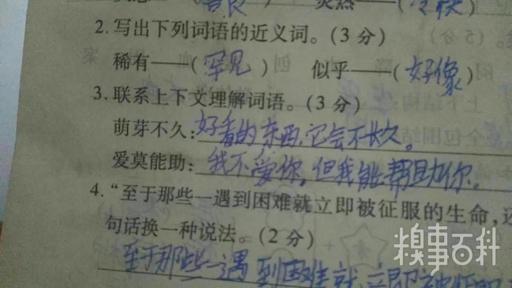 2.写出下列词语的近义词。(3分)
稀有——(罕见) 似乎——(好像)
3.联系上下文理解词语。(3分)
萌芽不久:好看的东西,它会不长久。
爱莫能助:我不爱你,但我能帮助你。
4.“至于那些一遇到困难就立即被征服的生命,还
句话换一种说法。(2分)
至于那些一遇到困难就立即被征服
糗事百科